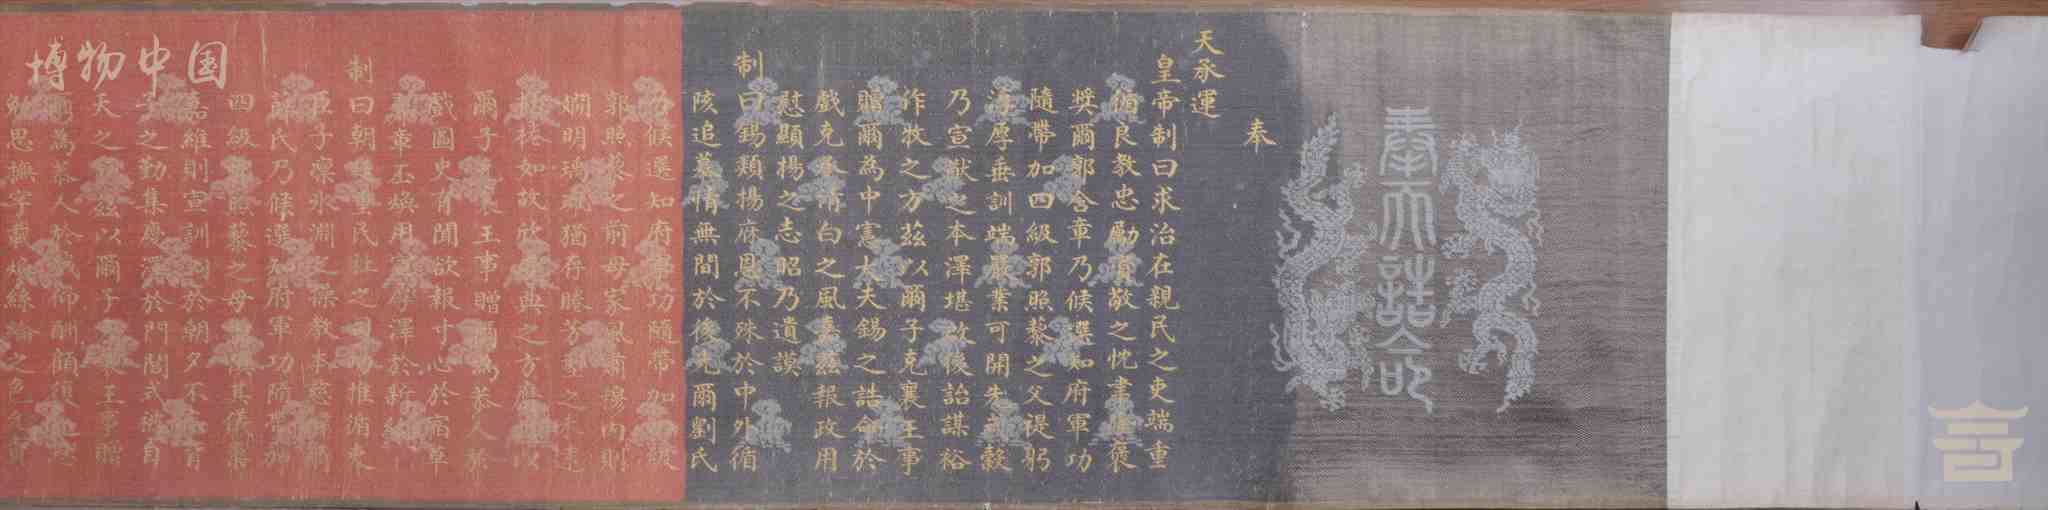 奉天誥命
奉
天承運
皇帝制曰求治在親民之吏端重
循良教忠勵資敬之忱聿隆褒
獎爾郭含章乃候選知府軍功
隨帶加四級郭照藜之父禔躬
淳厚垂訓端嚴業可開先式榖
乃宣猷之本澤堪啟後詒謀裕
作牧之方茲以爾子克襄王事
贈爾為中憲大夫錫之誥命於
戲克承清白之風嘉茲報政用
慰顯揚之志昭乃遺謨
制曰錫類揚庥恩不殊於中外循
陔追慕情無間於後先爾劉氏
乃候選知府軍功隨帶加四級
郭照藜之前母家風肅穆內則
嫻明瑀 猶存賸芳型之未遠
桮棬如故欣慶典之方膺茲以
爾子克襄王事贈爾為恭人於
戲圖史有聞欲報寸心於宿草
鸞章丕煥用宣厚澤於新綸
制曰朝廷重民社之司功推循吏
臣子凜冰淵之操教本慈闈爾
薛氏乃候選知府軍功隨帶加
四級郭照藜之母淑慎其儀柔
嘉維則宣訓詞於朝夕不忘育
子之勤集慶澤於門閭式被自
天之寵茲以爾子克襄王事贈
爾為恭人於戲仰酬顧復之恩
勉思撫字載煥絲綸之色允賁
博物中国